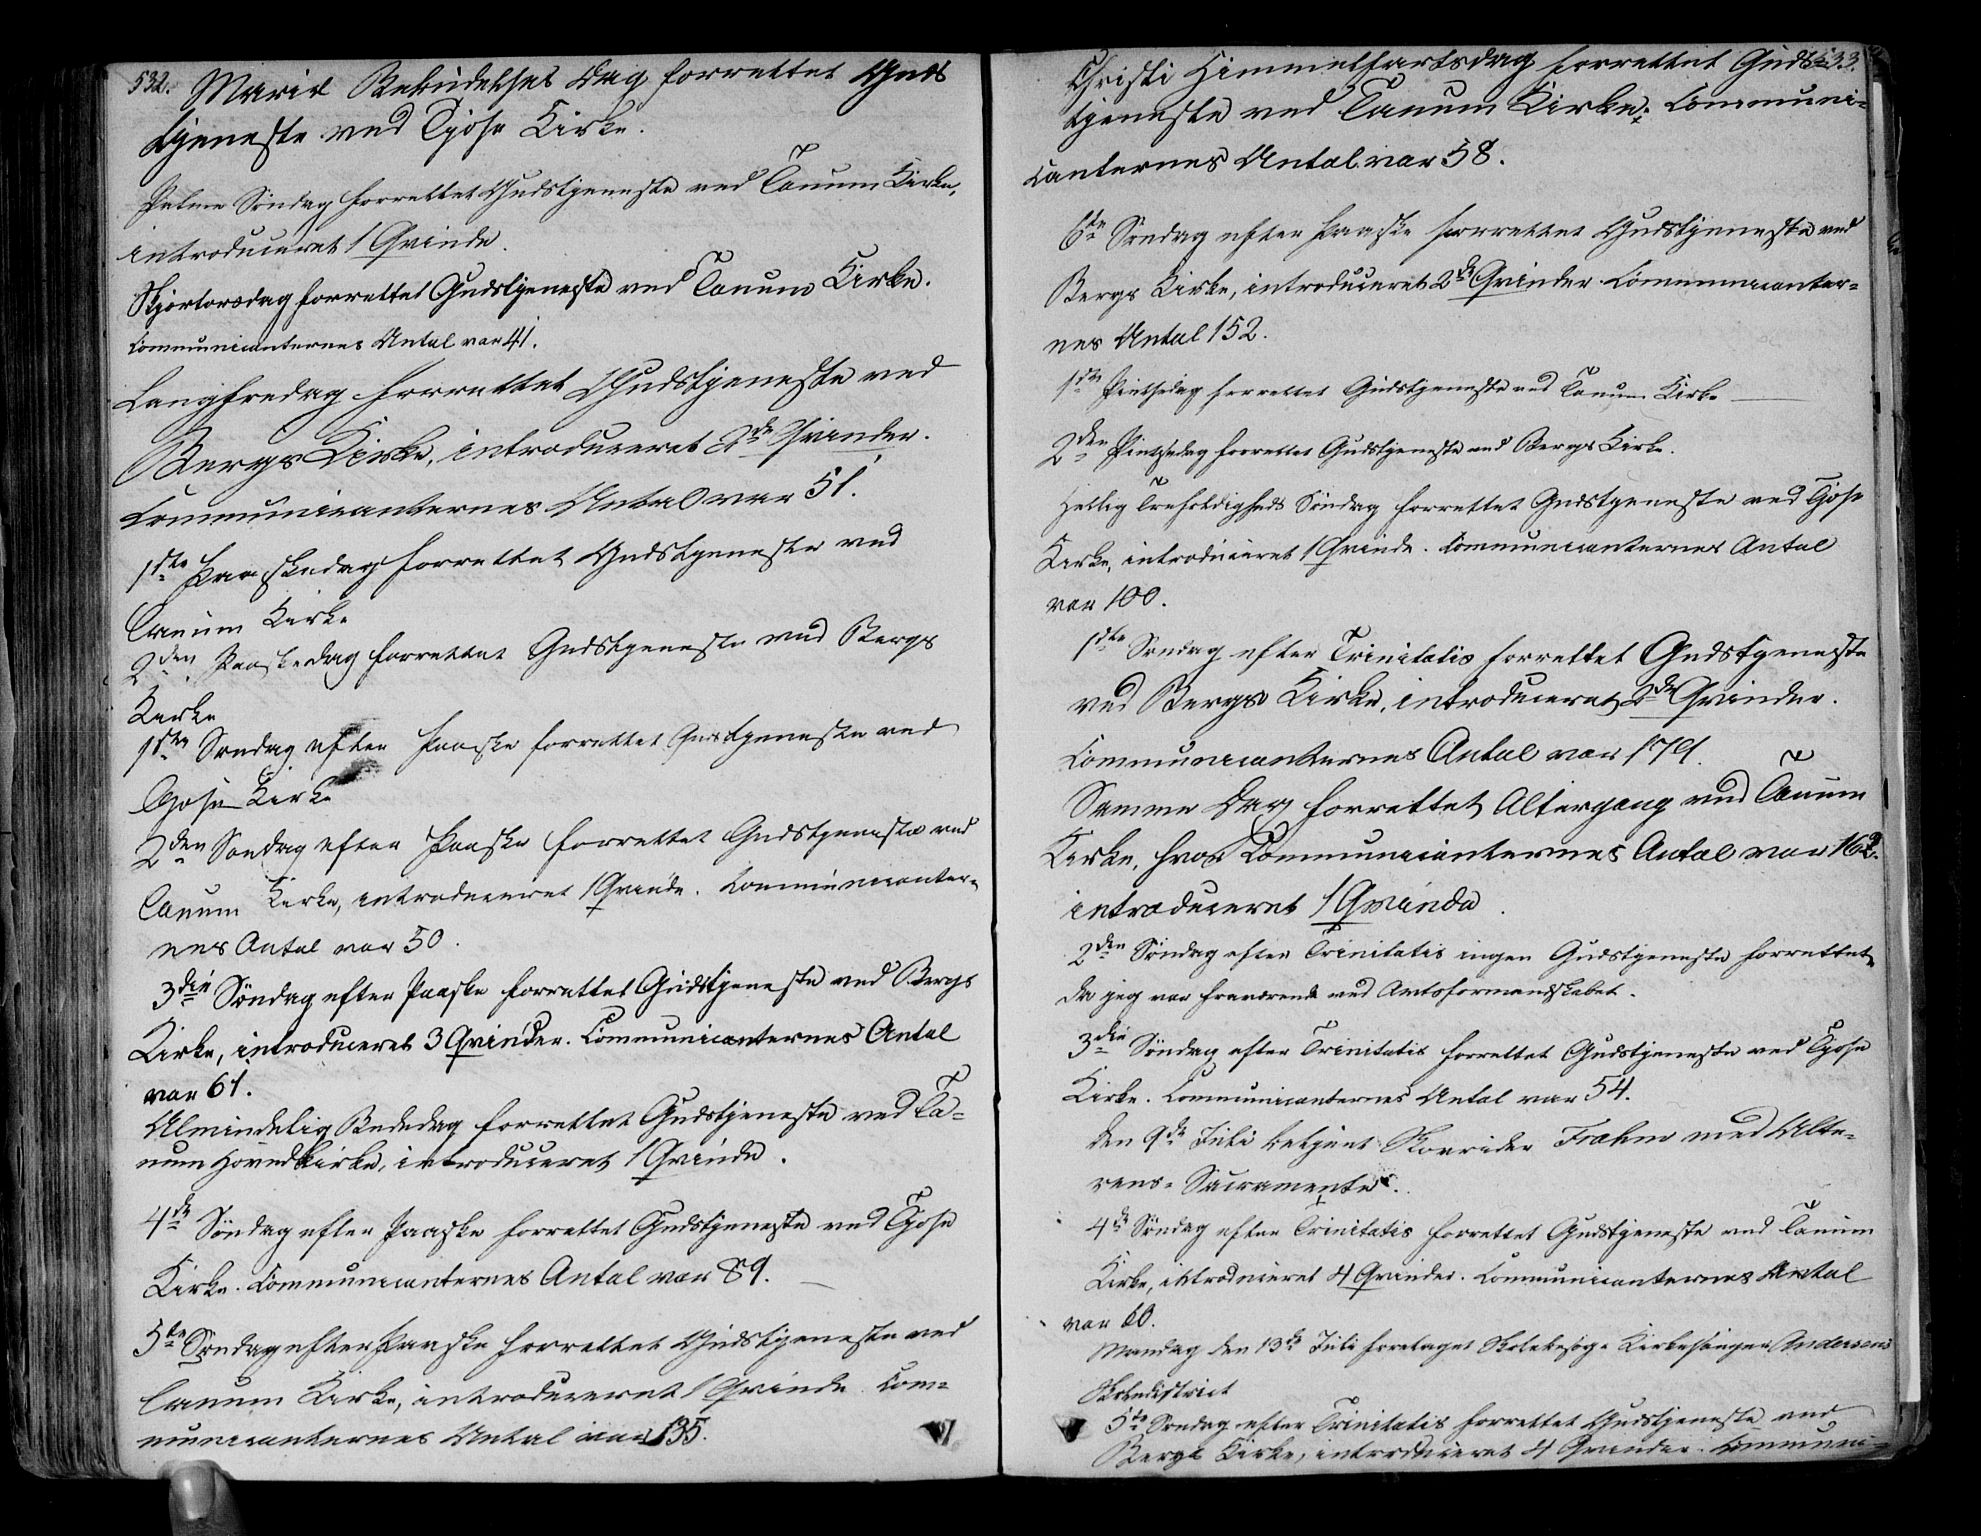 532.
Mariæ Bebudelses Dag forrettet Guds
tjeneste ved Tjøse Kirke.
Palme Søndag forrettet Gudstjeneste ved Tanum Kirke,
introduceret 1 Qvinde.
Skjertorsdag forrettet Gudstjeneste ved Tanum Kirke.
Communicanternes Antal var 41.
Langfredag forrettet Gudstjeneste ved
Bergs Kirke, introduceret 2de Qvinder.
Communicanternes Antal var 51.
1ste Paaskedag forrettet Gudstjeneste ved
Tanum Kirke
2den Paaskedag forrettet Gudstjeneste ved Bergs
Kirke
1ste Søndag efter Paaske forrettet Gudstjeneste ved
Tjøse Kirke
2den Søndag efter Paaske forrettet Gudstjeneste ved
Tanum Kirke, introduceret 1 Qvinde. Communicanter-
nes Antal var 50.
3die Søndag efter Paaske forrettet Gudstjeneste ved Bergs
Kirke, introduceret 3 Qvinder. Communicanternes Antal
var 61.
Almindelig Bededag forrettet Gudstjeneste ved Ta-
num Hovedkirke, introduceret 1 Qvinde.
4de Søndag efter Paaske forrettet Gudstjeneste ved Tjøse
Kirke. Communicanternes Antal var 89.
5te Søndag efter Paaske forrettet Gudstjeneste ved
Tanum Kirke, introduceret 1 Qvinde. Com-
municanternes Antal var 135.
533.
Christi Himmelfartsdag forrettet Guds-
tjeneste ved Tanum Kirke. Communi-
canternes Antal var 58.
6te Søndag efter Paaske forrettet Gudstjeneste ved
Bergs Kirke, introduceret 2de Qvinder. Communicanter-
nes Antal 152.
1ste Pintsedag forrettet Gudstjeneste ved Tanum Kirke
2den Pintsedag forrettet Gudstjeneste ved Bergs Kirke.
Hellig Trefoldigheds Søndag forrettet Gudstjeneste ved Tjøse
Kirke, introduceret 1 Qvinde. Communicanternes Antal
var 100.
1ste Søndag efter Trinitatis forrettet Gudstjeneste
ved Bergs Kirke, introduceret 2de Qvinder.
Communicanternes Antal var 174.
Samme Dag forrettet Altergang ved Tanum
Kirke, hvor Communicanternes Antal var 162.
introduceret 1 Qvinde.
2den Søndag efter Trinitatis ingen Gudstjeneste forrettet,
da jeg var fraværende ved Amtsformandskabet.
3die Søndag efter Trinitatis forrettet Gudstjeneste ved Tjøse
Kirke. Communicanternes Antal var 54.
den 9de Juli betjent Skovrider Frahm med Alte-
rens Sacramente.
4de Søndag efter Trinitatis forrettet Gudstjeneste ved Tanum
Kirke, introduceret 4 Qvinder. Communicanternes Antal
var 60.
Mandag den 13de Juli foretaget Skolebesøg i Kirkesanger Andersens
Skoledistrict
5te Søndag efter Trinitatis forrettet Gudstjeneste ved
Bergs Kirke, introduceret 4 Qvinder. Communi-